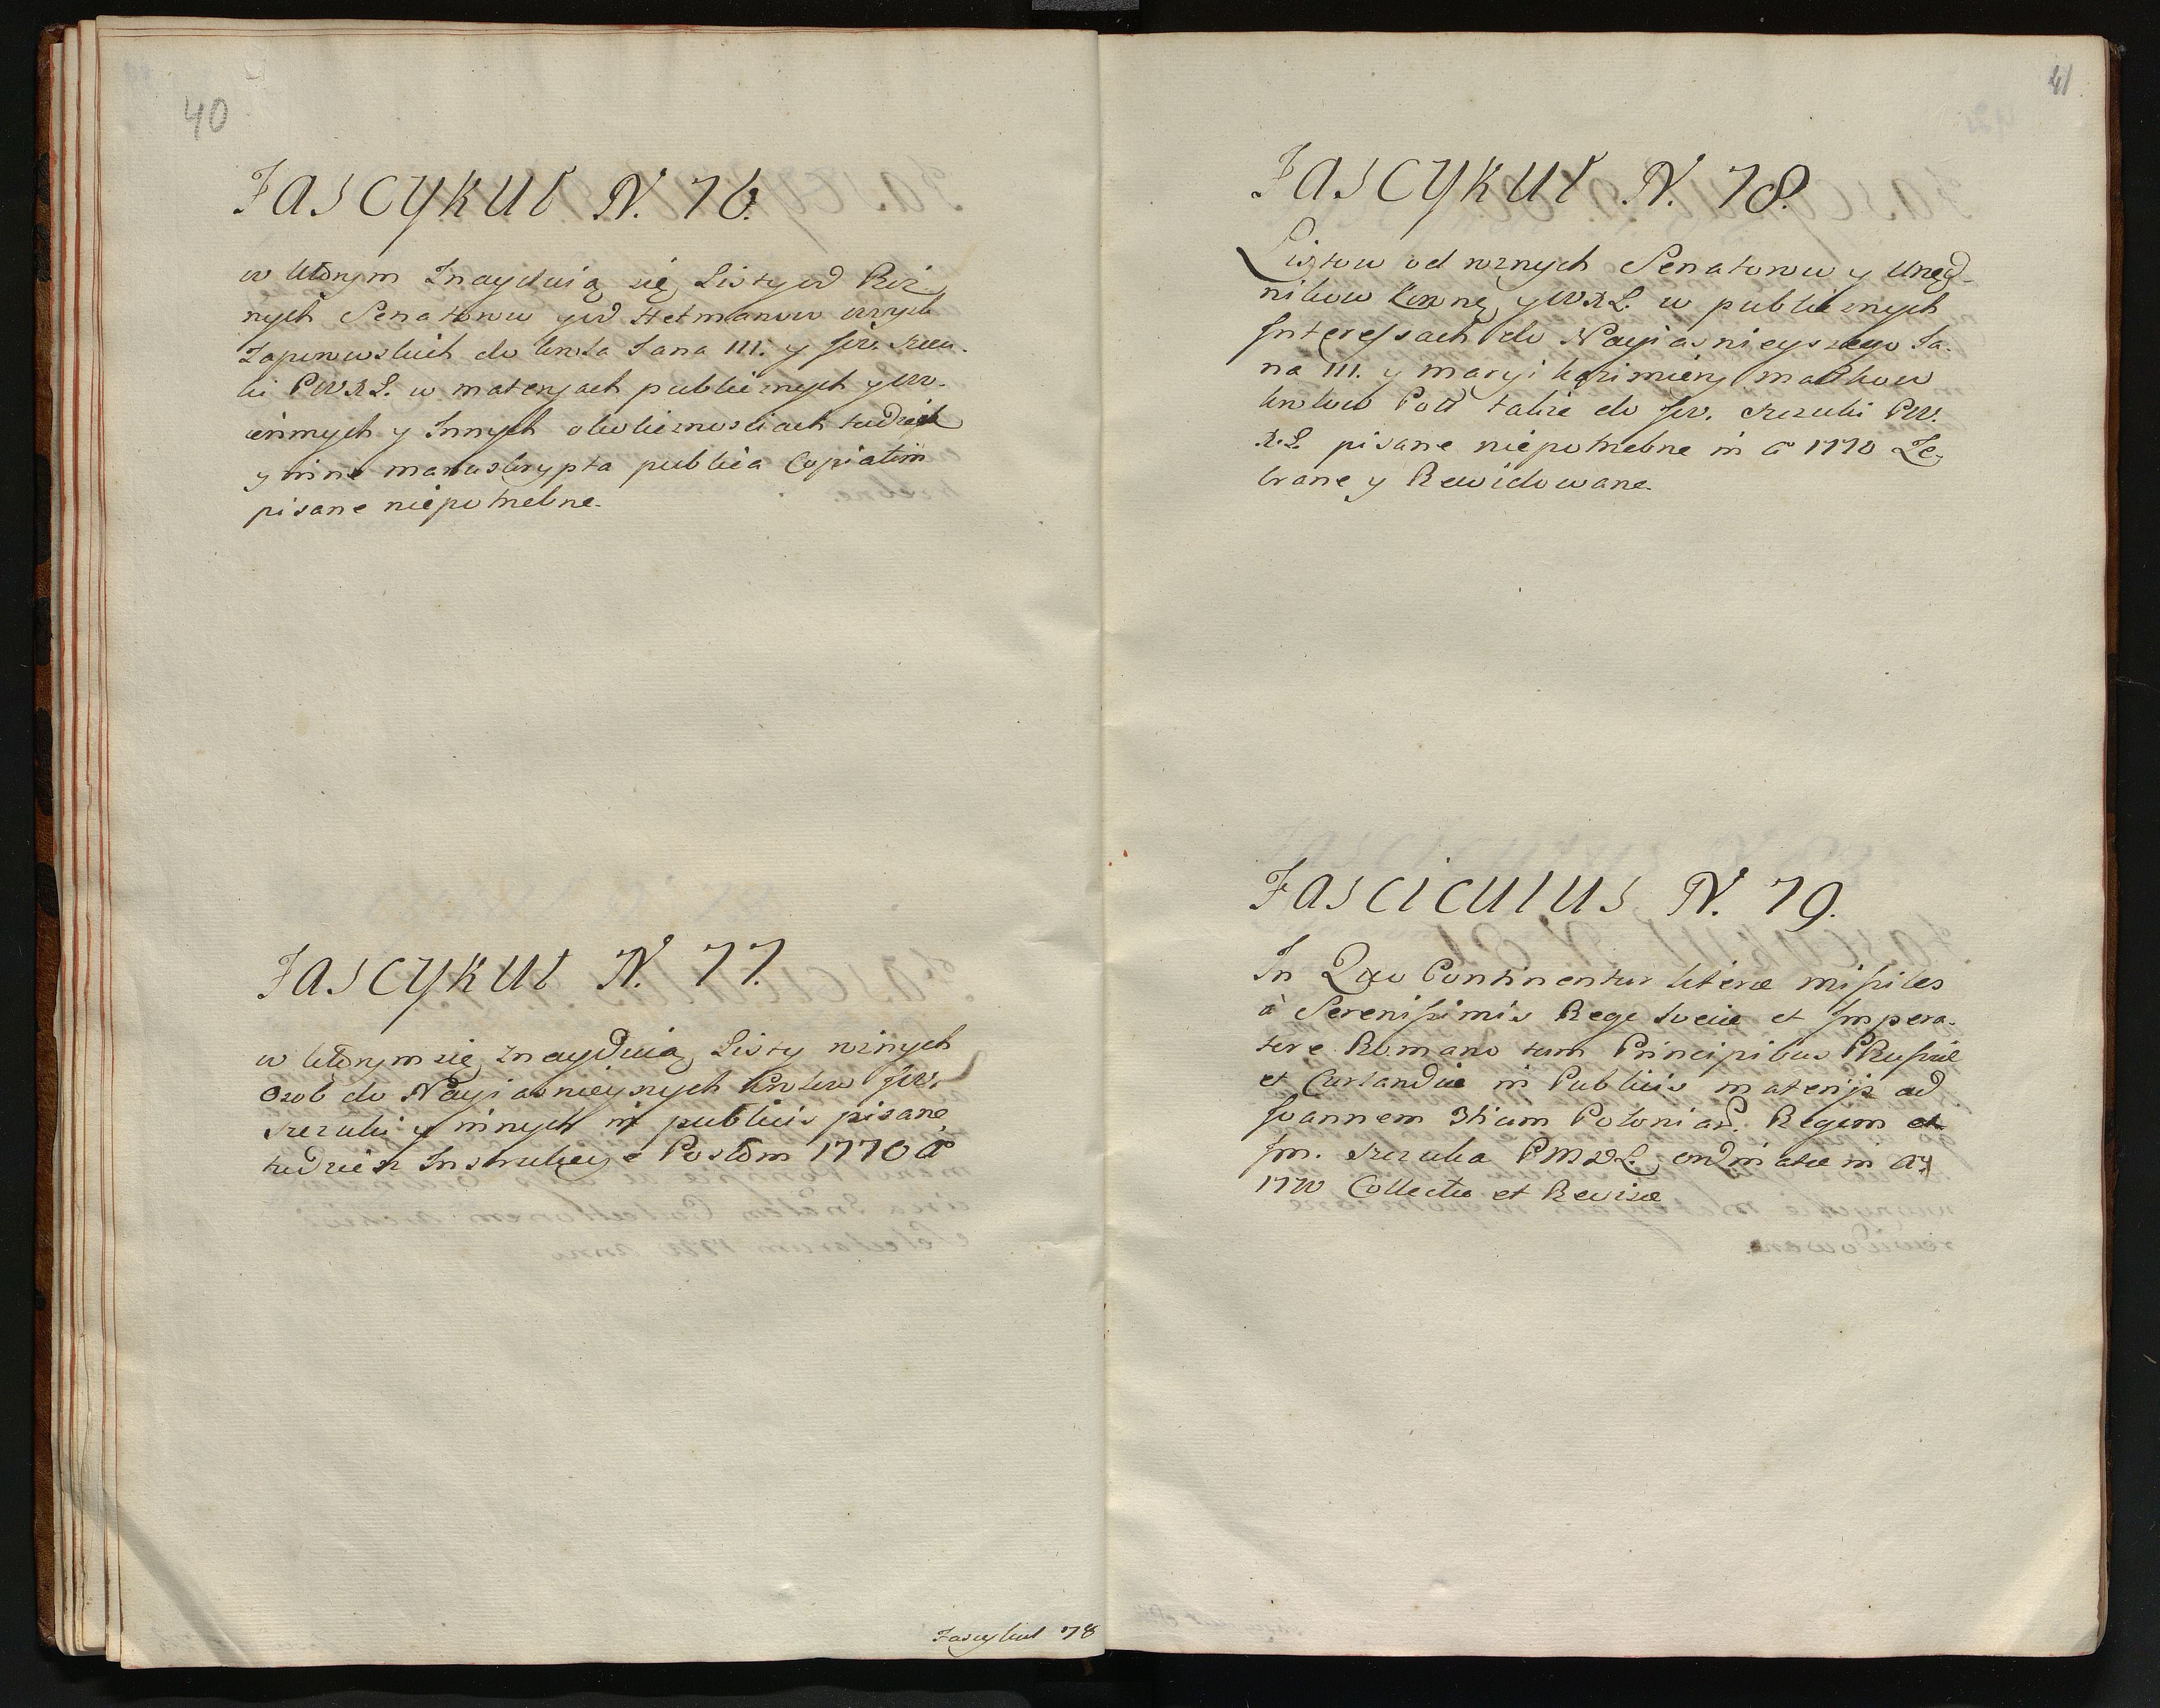 40
Fascykuł N. 76.
w którym Znayduią się Listy od Róż-
nych Senatorow y od Hetmanow
do Krola Jana III. y
ki PWXL. w materyach publicznych y
innych y Innych okolicznosciach tudziesz
y inne manuskrypta publica Copiatim
pisane niepotrzebne.
Fascykuł N. 77.
w którym się znayduią Listy roznych
Osob do Nayiasnieyszych Krolow JW.
Szczuki y innych in publicis pisane,
tudziesz Instrukcye Posłom 1770 Ao
Fascykuł 78
41
Fascykuł N. 78.
Listow od roznych Senatorow y Urzęd-
nikow y WXL. w publicznych
Interessach do Nayiasnieyszego Ja-
na III. y Maryi Kazimiery małżkow
Krolow Pol takze do JW. Szczuki PW.
X.L. pisane niepotrzebne in Ao 1770 Ze-
brane y Rewidowane.
Fasciculus N. 79.
In Quo Continentur literæ missiles
à Serenissimis Rege Sveciæ et Impera-
tore Romano tum Principibus Prussiæ
et Curlandiæ in Publicis materijs ad
Joannem 3tium Poloniar. Regem et
Jm. Szczuka PMDL. ordinatæ in Ao
1770 Collectæ et Revisæ